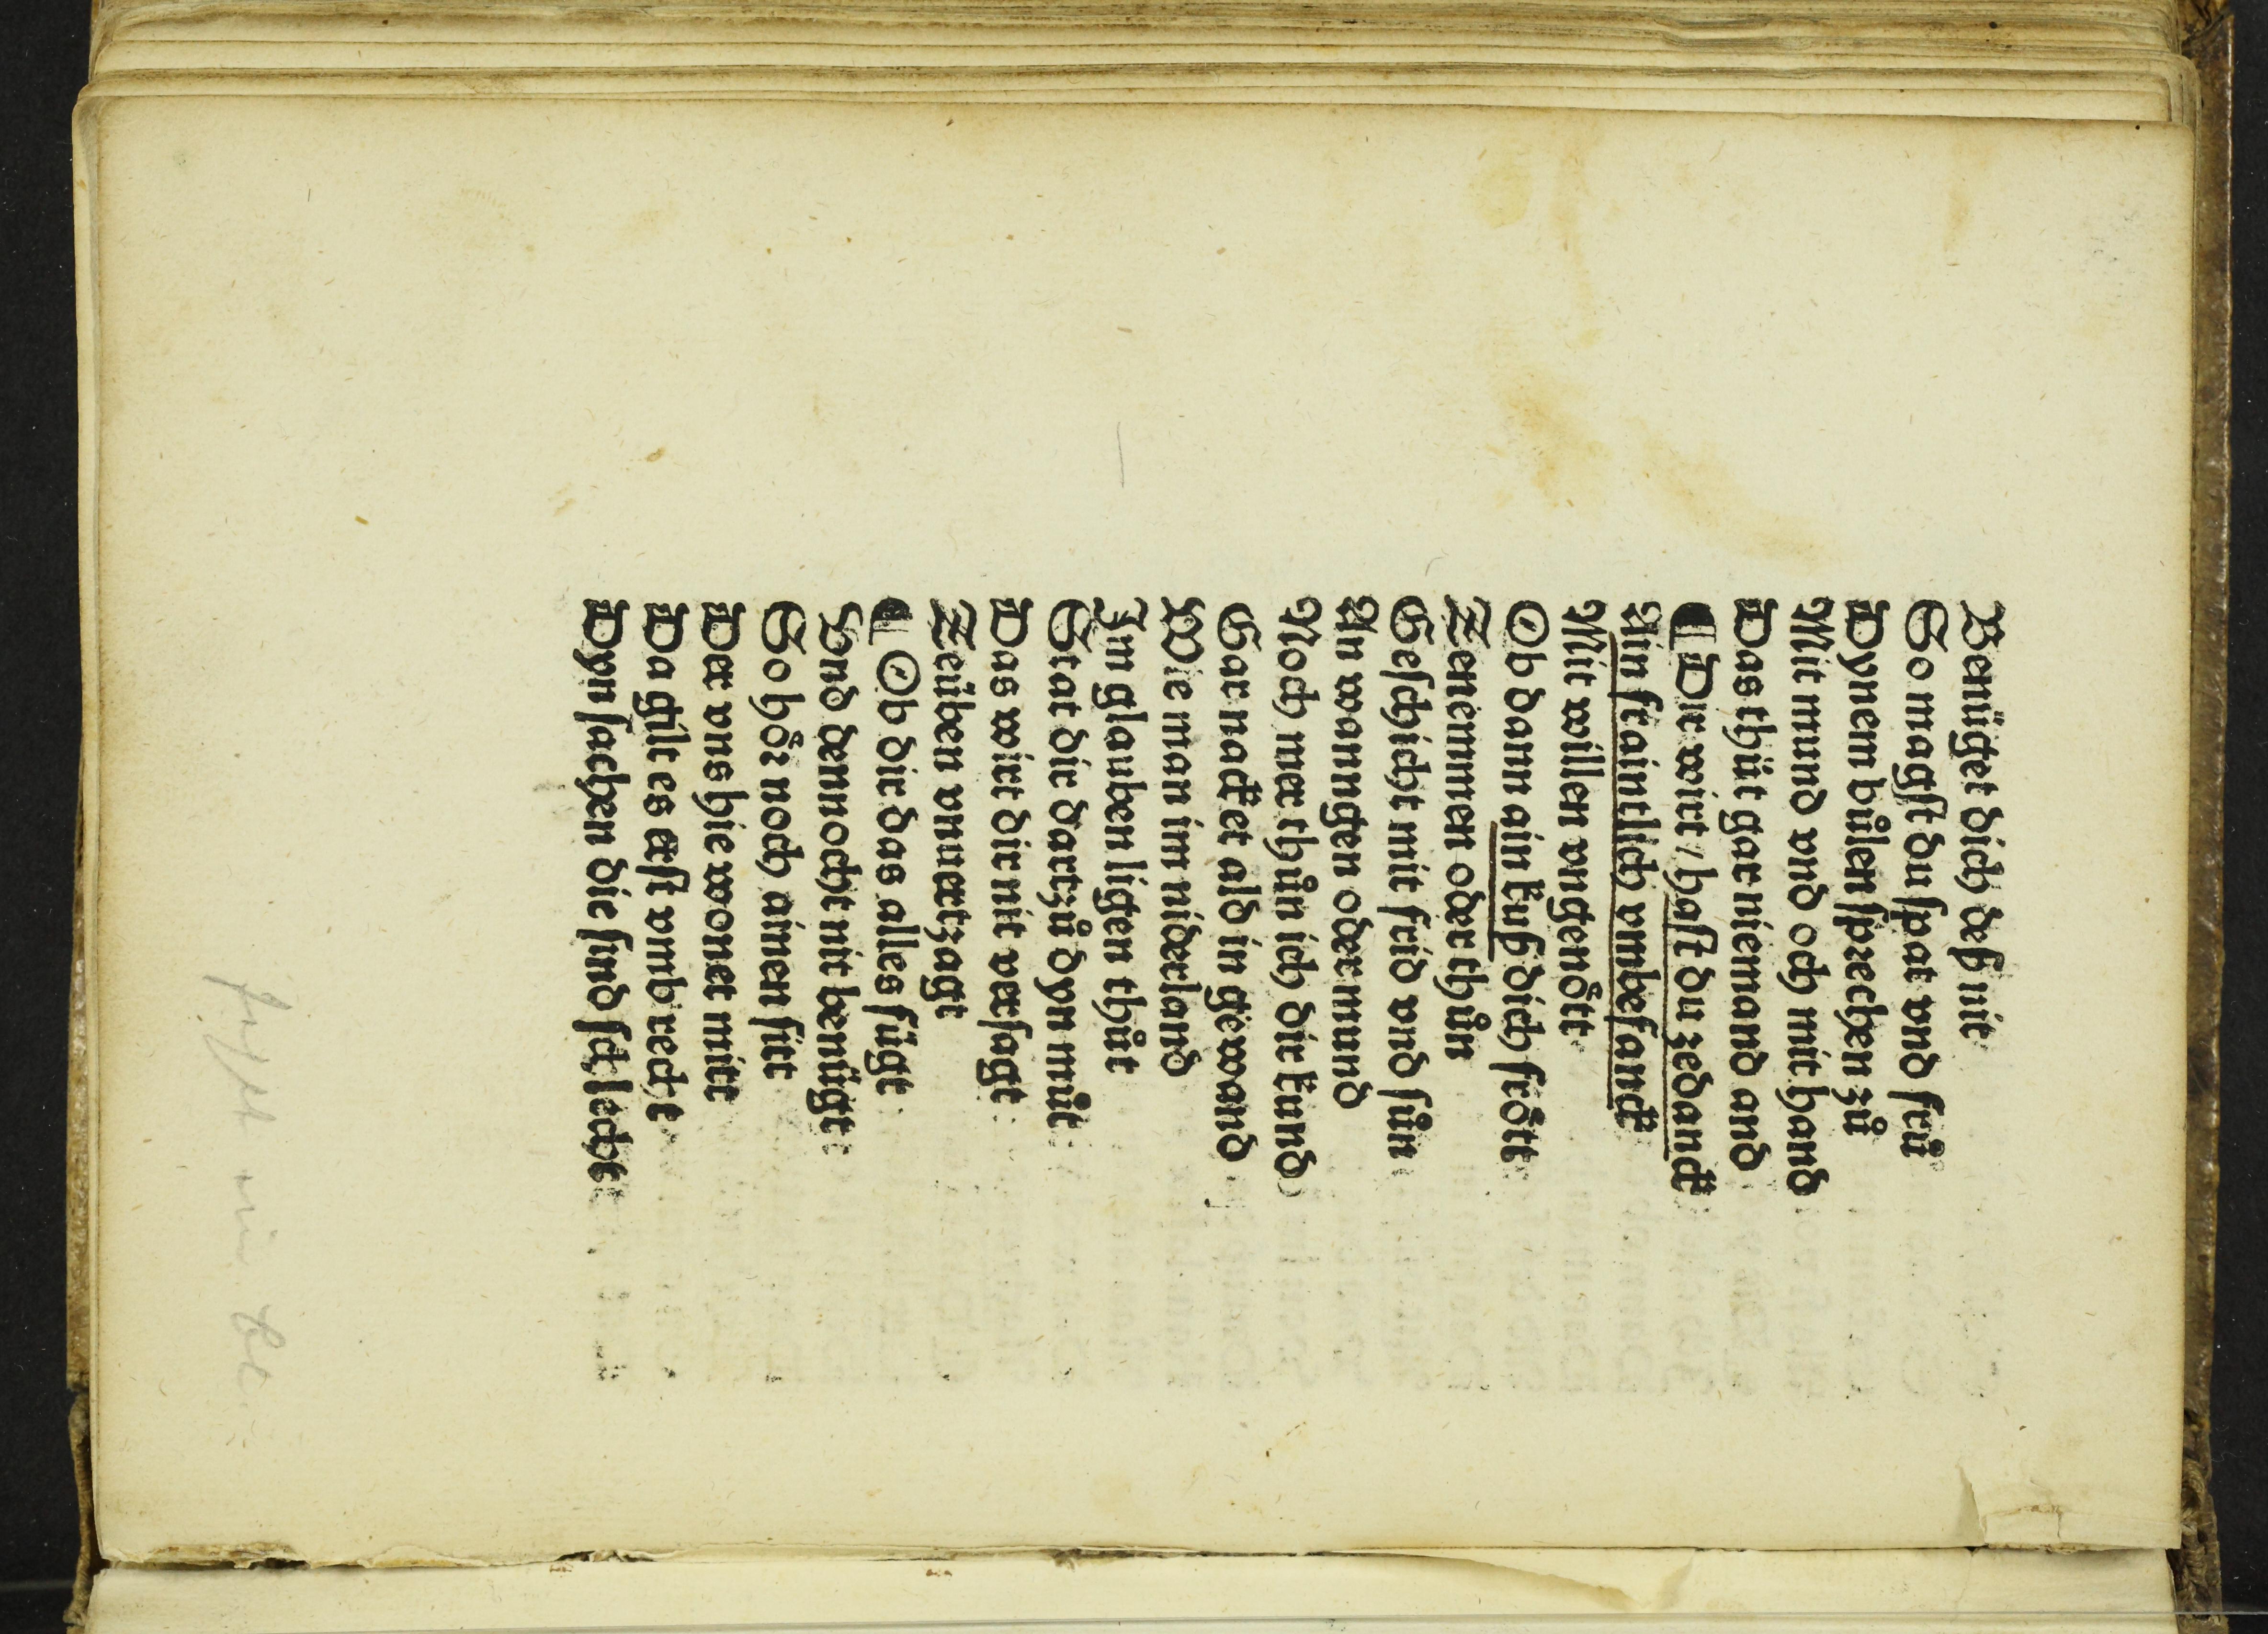 Benüget dich deß nit
So magſt du ſpat vnd frü
Dynem bůlen ſprechen zů
Mit mund vnd och mit hand
Das thüt gar niemand and
¶ Dir wirt / haſt du zedanck
Ain fraintlich vmbefanck
Mit willen vngenött
Ob dann ain kuß dich frött
Zenemmen oder thůn
Geſchicht mit frid vnd ſůn
An wanngen oder mund
Noch mer thůn ich dir kund
Gar nacket ald in gewand
Wie man im niderland
Im glauben ligen thůt
Stat dir dartzů dyn můt
Das wirt dir nit verſagt
Zeüben vnuertzagt
¶ Ob dir das alles fügt
Vnd dennocht nit benügt
So hör noch ainen ſitt
Der vns hie wonet mitt
Da gilt es erſt vmb recht
Dyn ſachen die ſind ſchlecht